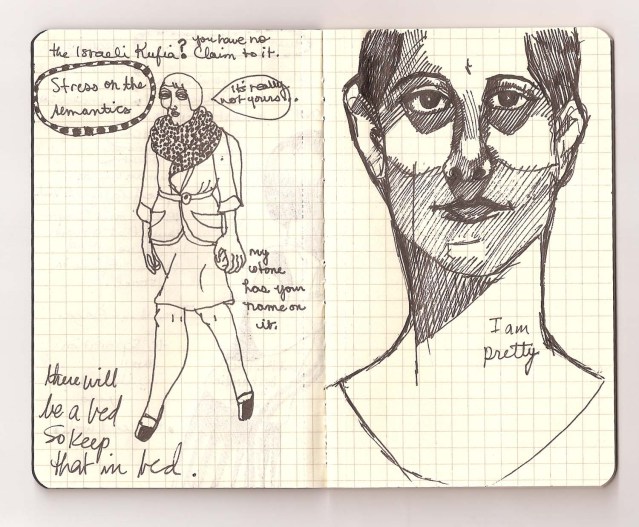 the Israeli Kufia? you have no
Claim to it.
Stress on the
semantics
It's really
not yours!..
my
stone
has your
name on
it.
there will
be a bed
So keep
that in bed.
I am
pretty